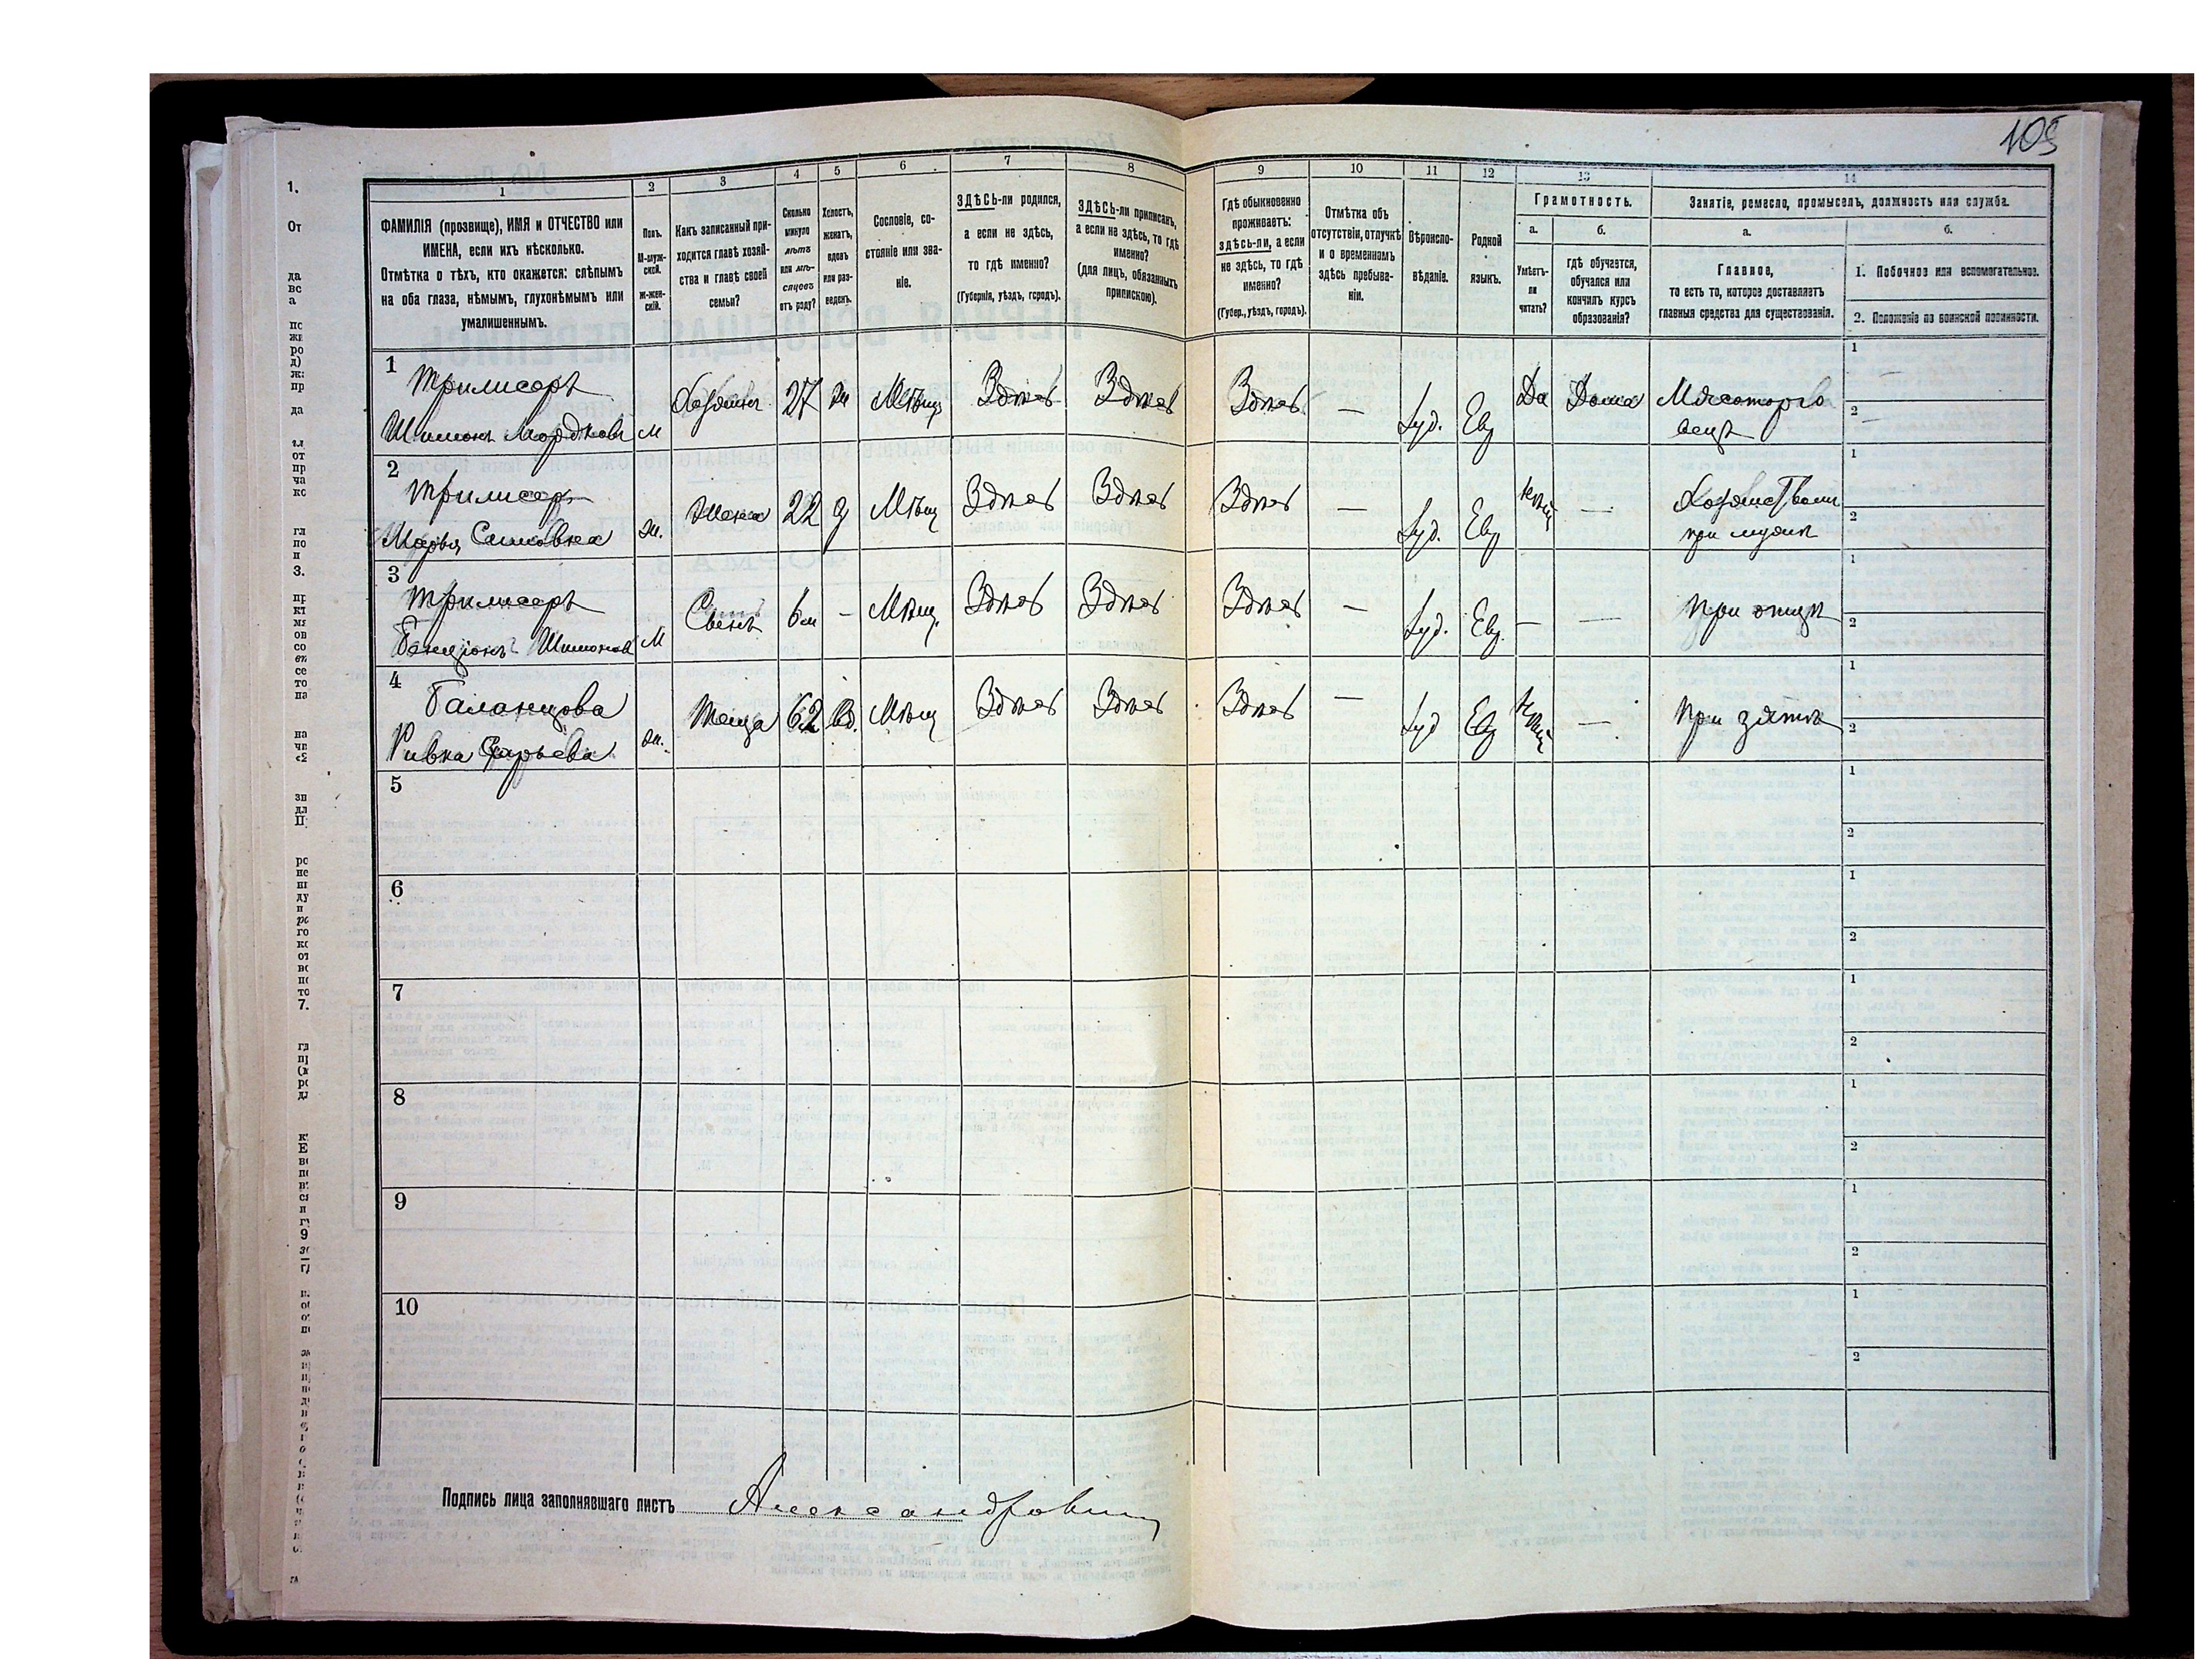 105
1 2 3 4 5 6 7 8 9 10 11 12 13 14
ФАМИЛІЯ (прозвище), ИМЯ и ОТЧЕСТВО или
ИМЕНА, если ихъ нѣсколько.
Отмѣтка о тѣхъ, кто окажется: слѣпымъ
на оба глаза, нѣмымъ, глухонѣмымъ или
умалишеннымъ.
Полъ.
М-муж-
ской.
ж-жен-
скій.
Какъ записанный при-
ходится главѣ хозяй-
ства и главѣ своей
семьи?
Сколько
минуло
лѣтъ
или мѣ-
сяцевъ
отъ роду?
Холостъ,
женатъ,
вдовъ
или раз-
веденъ.
Сословіе, со-
стояніе или зва-
ніе.
ЗДѢСЬ-ли родился,
а если не здѣсь,
то гдѣ именно?
(Губернія, уѣздъ, городъ).
ЗДѢСЬ-ли приписанъ,
а если не здѣсь, то гдѣ
именно?
(для лицъ, обязанныхъ
припискою).
Гдѣ обыкновенно
проживаетъ:
здѣсь-ли, а если
не здѣсь, то гдѣ
именно?
(Губер., уѣздъ, городъ).
Отмѣтка объ
отсутствіи, отлучкѣ
и о временномъ
здѣсь пребыва-
ніи.
Вѣроиспо-
вѣданіе.
Родной
языкъ.
Грамотность.
а.
Умѣетъ-
ли
читать?
б.
гдѣ обучается,
обучался или
кончилъ курсъ
образованія?
Занятіе, ремесло, промыселъ, должность или служба.
а.
Главное,
то есть то, которое доставляетъ
главныя средства для существованія.
б.
1. Побочное или вспомогательное.
2. Положеніе по воинской повинности.
1 Трилисеръ Хозяинъ 27 ж Мѣщ Здѣсь Здѣсь Здѣсь — Іуд. Евр Да Дома Мясоторго 1
Шимонъ Мордковъ М вецъ 2
2 Трилисеръ Жена 22 з Мѣщ Здѣсь Здѣсь Здѣсь — Іуд. Евр — 1
Марья ж. при мужѣ 2
3 Трилисеръ Сынъ 6 м — Мѣщ. Здѣсь Здѣсь Здѣсь — Іуд. Евр. — — при отцѣ 1
Бенціонъ Шимоновъ М 2
4 Баланцова Теща 62 вд. Мѣщ Здѣсь Здѣсь Здѣсь — Іуд Евр — при зятѣ 1
Ривка ж. 2
5 1
2
6 1
2
7 1
2
8 1
2
9 1
2
10 1
2
Подпись лица заполнявшаго листъ Александровичъ